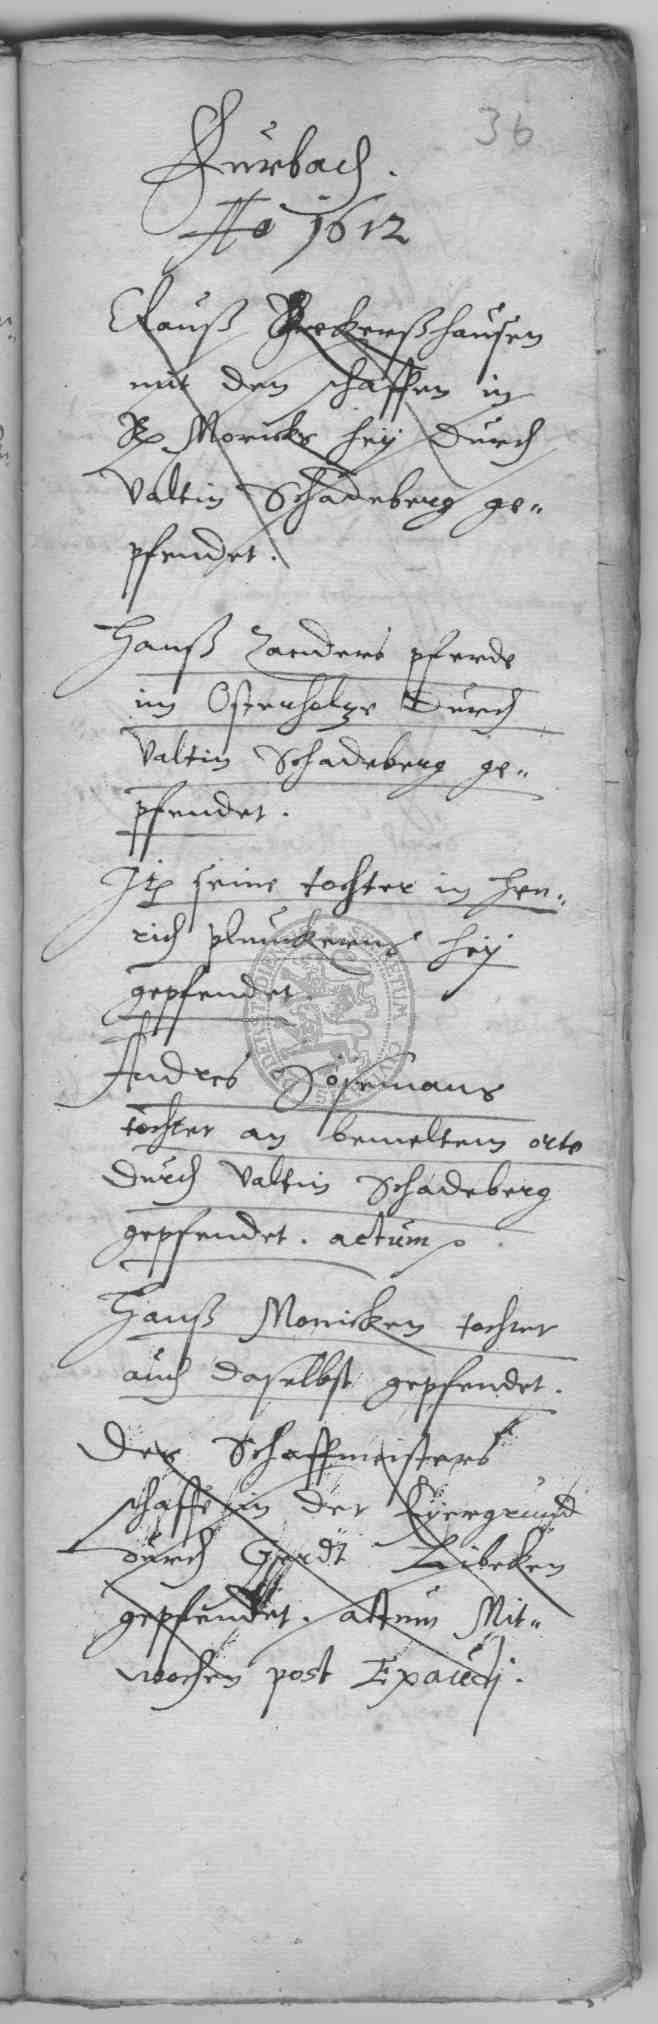 36
Furbach.
Ao 1612
Clauß Beckerßhausen
mit den schaffen in
Moricks heij durch
Valtin Schadeberg ge„
pfendet.
Hanß Zanders pferde
im Ostenholze durch
Valtin Schadeberg ge„
pfendet.
It seine tochter in Hen„
rich plunckeners heij
gepfendet.
Andres Sösemans
tochter an bemeltem orte
durch Valtin Schadeberg
gepfendet. actum
Hanß Moricken tochter
auch daselbst gepfendet.
Des Schaffmeisters
schaffe in der Eyergrund
durch Gerdt Libeken
gepfendet. actum Mit„
wochen post Exaudi.